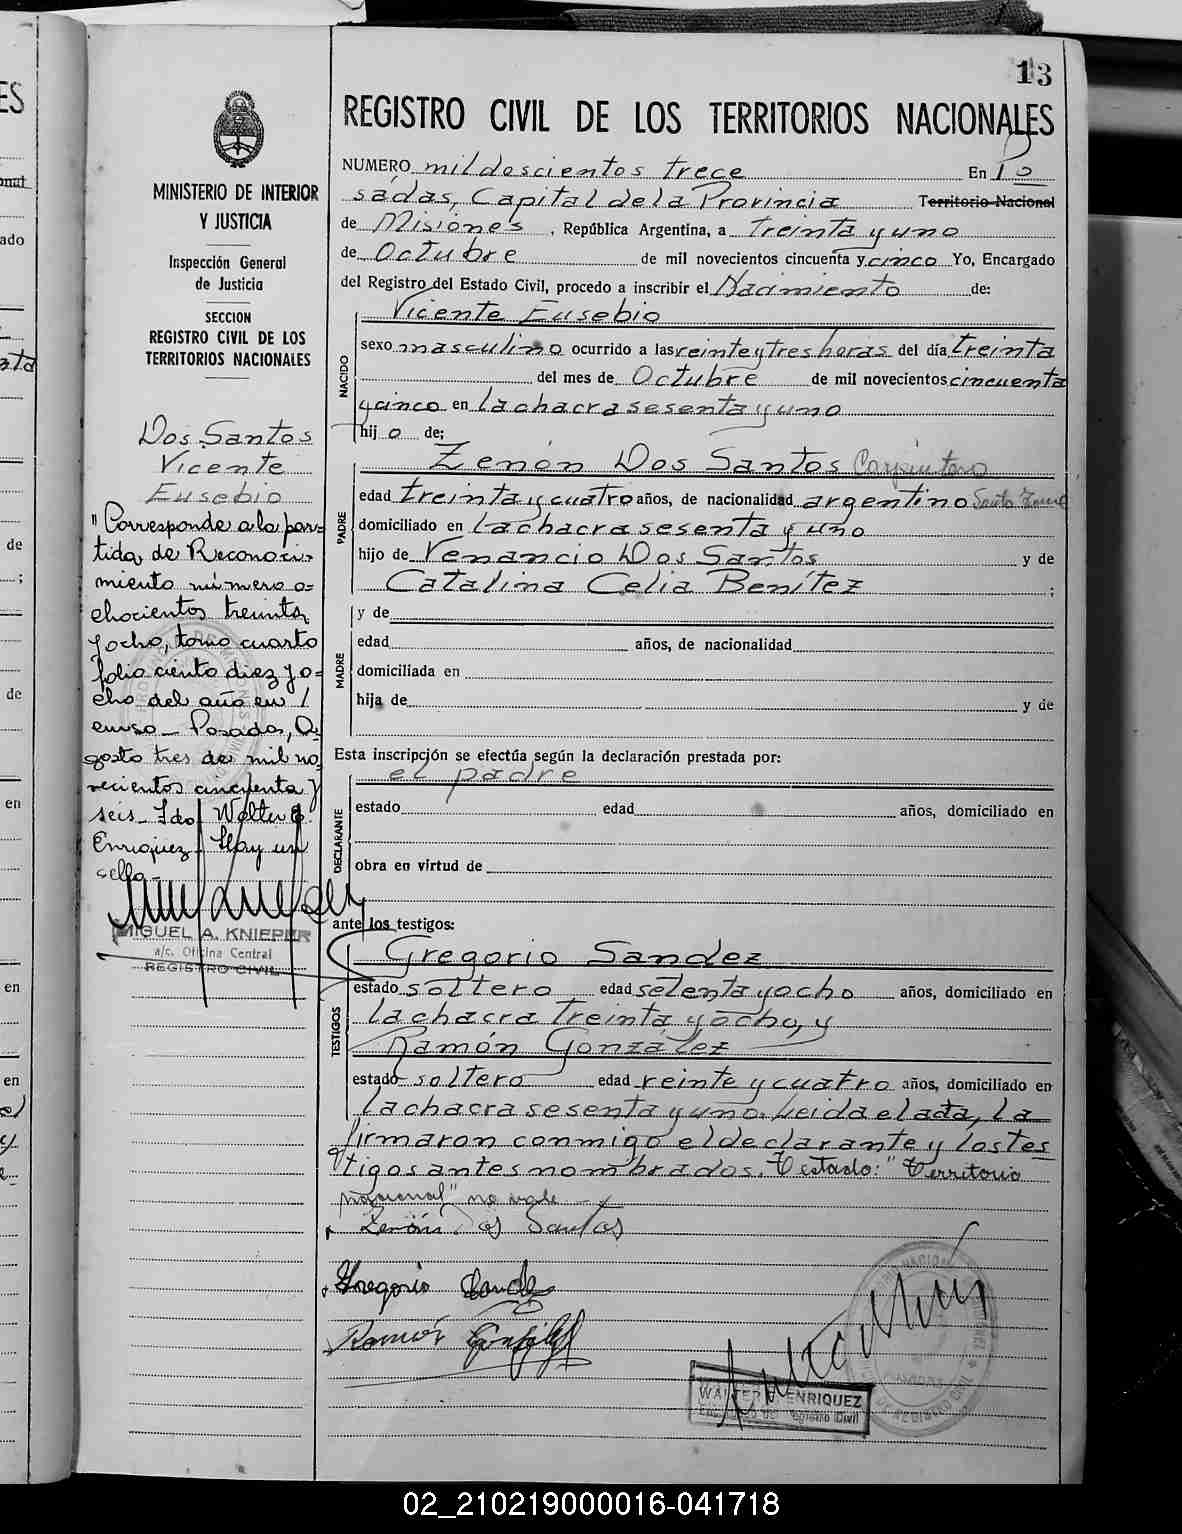 13
REGISTRO CIVIL DE LOS TERRITORIOS NACIONALES
MINISTERIO DE INTERIOR
Y JUSTICIA
Inspección General
de Justicia
SECCION
REGISTRO CIVIL DE LOS
TERRITORIOS NACIONALES
Dos Santos
Vicente
Eusebio
"Corresponde a la par-
tida de Reconoci-
miento número o-
chocientos treinta
y ocho, tomo cuarto
folio ciento diez y o-
cho del año en
curso - Posadas, A-
gosto tres de mil no-
vecientos cincuenta y
seis - Fdo Walter E.
Enriquez - Hay un
sello -
MIGUEL A. KNIEPER
a/c. Oficina Central
REGISTRO CIVIL
NUMERO mil doscientos trece En Po
sadas, Capital de la Provincia Territorio Nacional
de Misiones, República Argentina, a treinta y uno
de Octubre de mil novecientos cincuenta y cinco Yo, Encargado
del Registro del Estado Civil, procedo a inscribir el Nacimiento de:
NACIDO
Vicente Eusebio
sexo masculino ocurrido a las veinte y tres horas del día treinta
del mes de Octubre de mil novecientos cincuenta
y cinco en la chacra sesenta y uno
hijo de;
PADRE
Zenón Dos Santos Carpintero
edad treinta y cuatro años, de nacionalidad argentino
domiciliado en la chacra sesenta y uno
hijo de Venancio Dos Santos y de
Catalina Celia Benítez ;
MADRE
y de
edad años, de nacionalidad
domiciliada en
hija de y de
Esta inscripción se efectúa según la declaración prestada por:
DECLARANTE
el padre
estado edad años, domiciliado en
obra en virtud de
ante los testigos:
TESTIGOS
Gregorio Sandez
estado soltero edad setenta y ocho años, domiciliado en
la chacra treinta y ocho, y
Ramón González
estado soltero edad veinte y cuatro años, domiciliado en
la chacra sesenta y uno. Leida el acta, la
firmaron conmigo el declarante y los tes
tigos antes nombrados. Testado: "Territorio
nacional" no vale
Zenón Dos Santos
Gregorio Sandez
Ramón González
WALTER E. ENRIQUEZ
Encargado del Registro Civil
02_210219000016-041718